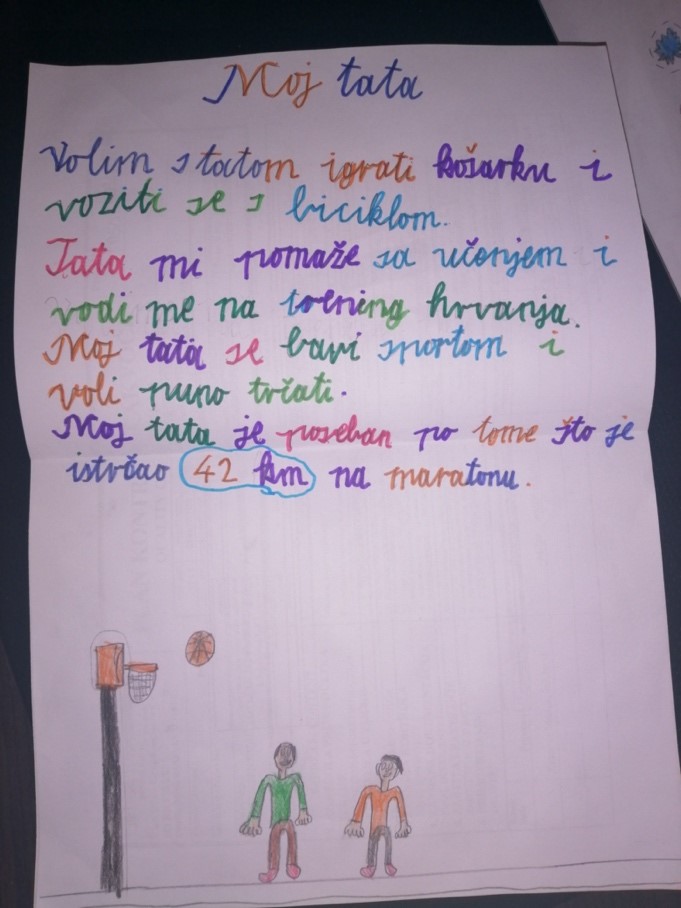 Moj tata
Volim s tatom igrati košarku i
voziti se s biciklom.
Tata mi pomaže sa učenjem i
vodi me na trening hrvanja.
Moj tata se bavi sportom i
voli puno trčati.
Moj tata je poseban po tome što je
istrčao 42 km na maratonu.